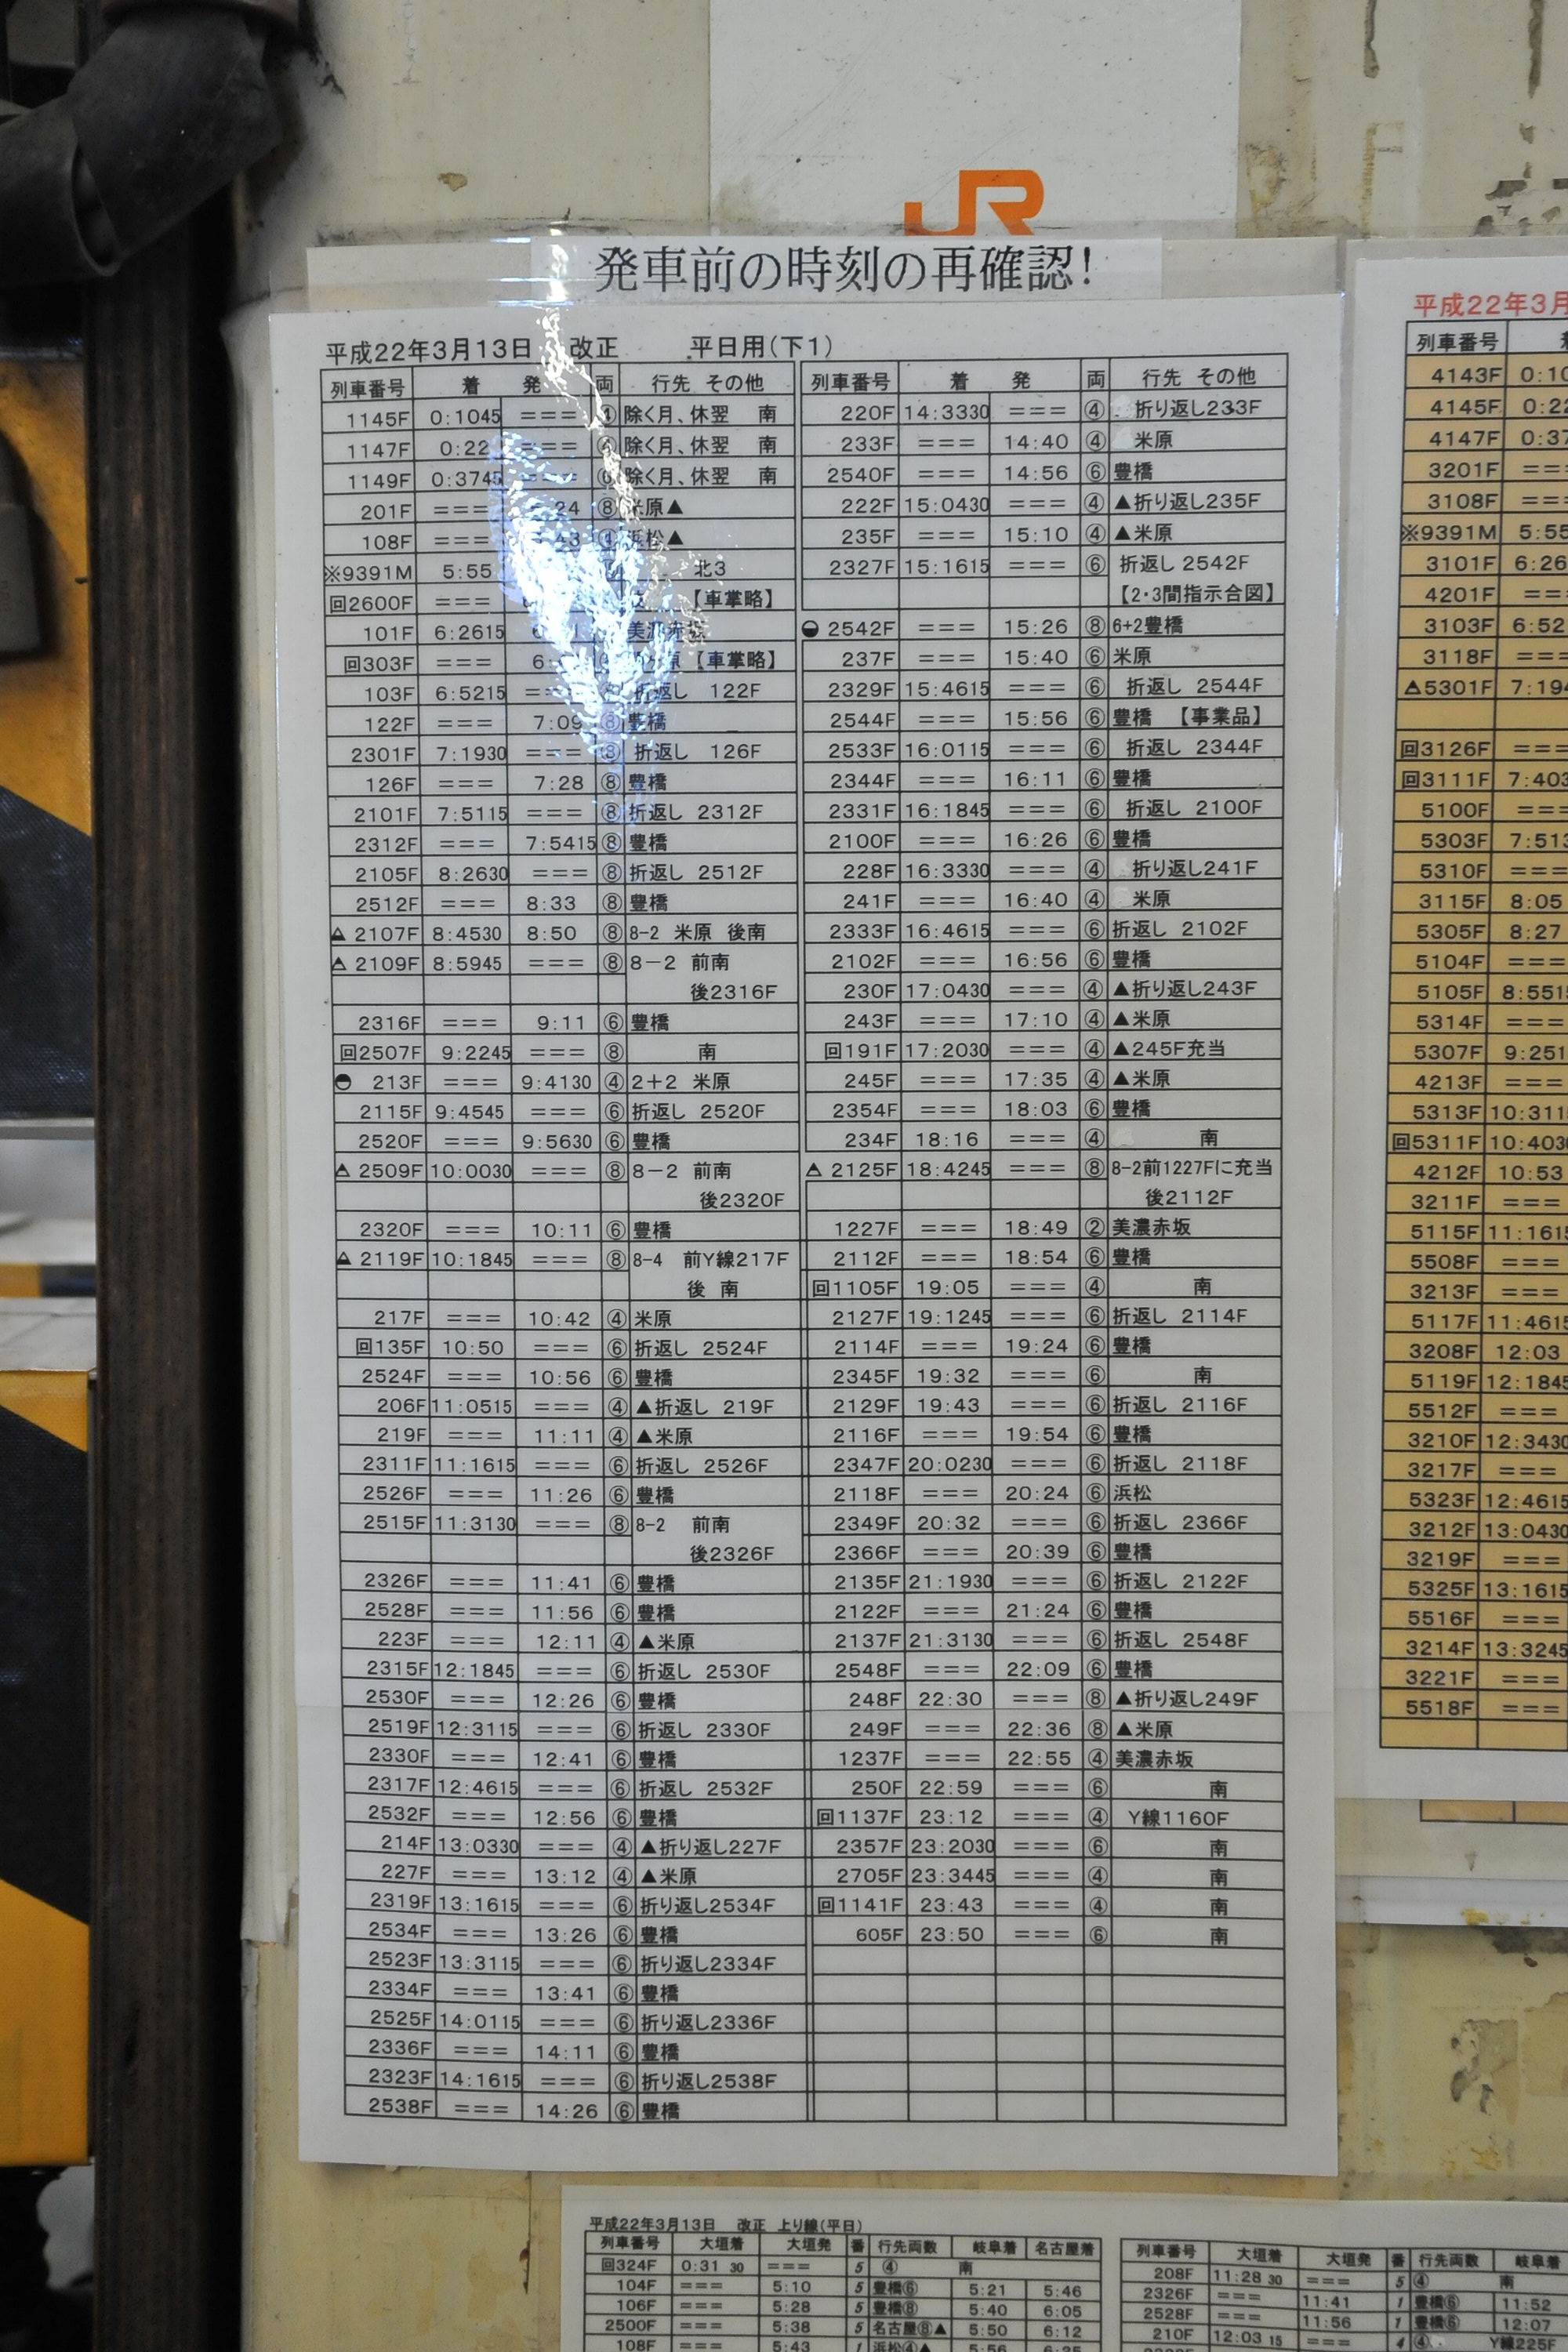 JR
発車前の時刻の再確認!
平成22年3月13日 改正 平日用(下1)
列車番号 着 発 両 行先 その他
1145F 0:1045 === ④ 除く月、休翌 南
1147F 0:22 === 除く月、休翌 南
1149F 0:3745 除く月、休翌 南
201F === 24 ⑧ 米原▲
108F === 43 浜松▲
※9391M 5:55 北3
回2600F === 【車掌略】
101F 6:2615 美濃赤坂
回303F === 【車掌略】
103F 6:5215 折返し 122F
122F === 7:09 ⑧ 豊橋
2301F 7:1930 === ⑧ 折返し 126F
126F === 7:28 ⑧ 豊橋
2101F 7:5115 === ⑧ 折返し 2312F
2312F === 7:5415 ⑧ 豊橋
2105F 8:2630 === ⑧ 折返し 2512F
2512F === 8:33 ⑧ 豊橋
2107F 8:4530 8:50 ⑧ 8-2 米原 後南
2109F 8:5945 === ⑧ 8-2 前南
後2316F
2316F === 9:11 ⑥ 豊橋
回2507F 9:2245 === ⑧ 南
213F === 9:4130 ④ 2+2 米原
2115F 9:4545 === ⑥ 折返し 2520F
2520F === 9:5630 ⑥ 豊橋
2509F 10:0030 === ⑧ 8-2 前南
後2320F
2320F === 10:11 ⑥ 豊橋
2119F 10:1845 === ⑧ 8-4 前Y線217F
後 南
217F === 10:42 ④ 米原
回135F 10:50 === ⑥ 折返し 2524F
2524F === 10:56 ⑥ 豊橋
206F 11:0515 === ④ ▲折返し 219F
219F === 11:11 ④ ▲米原
2311F 11:1615 === ⑥ 折返し 2526F
2526F === 11:26 ⑥ 豊橋
2515F 11:3130 === ⑧ 8-2 前南
後2326F
2326F === 11:41 ⑥ 豊橋
2528F === 11:56 ⑥ 豊橋
223F === 12:11 ④ ▲米原
2315F 12:1845 === ⑥ 折返し 2530F
2530F === 12:26 ⑥ 豊橋
2519F 12:3115 === ⑥ 折返し 2330F
2330F === 12:41 ⑥ 豊橋
2317F 12:4615 === ⑥ 折返し 2532F
2532F === 12:56 ⑥ 豊橋
214F 13:0330 === ④ ▲折り返し227F
227F === 13:12 ④ ▲米原
2319F 13:1615 === ⑥ 折り返し2534F
2534F === 13:26 ⑥ 豊橋
2523F 13:3115 === ⑥ 折り返し2334F
2334F === 13:41 ⑥ 豊橋
2525F 14:0115 === ⑥ 折り返し2336F
2336F === 14:11 ⑥ 豊橋
2323F 14:1615 === ⑥ 折り返し2538F
2538F === 14:26 ⑥ 豊橋
列車番号 着 発 両 行先 その他
220F 14:3330 === ④ 折り返し233F
233F === 14:40 ④ 米原
2540F === 14:56 ⑥ 豊橋
222F 15:0430 === ④ ▲折り返し235F
235F === 15:10 ④ ▲米原
2327F 15:1615 === ⑥ 折返し 2542F
【2・3間指示合図】
2542F === 15:26 ⑧ 6+2豊橋
237F === 15:40 ⑥ 米原
2329F 15:4615 === ⑥ 折返し 2544F
2544F === 15:56 ⑥ 豊橋 【事業品】
2533F 16:0115 === ⑥ 折返し 2344F
2344F === 16:11 ⑥ 豊橋
2331F 16:1845 === ⑥ 折返し 2100F
2100F === 16:26 ⑥ 豊橋
228F 16:3330 === ④ 折り返し241F
241F === 16:40 ④ 米原
2333F 16:4615 === ⑥ 折返し 2102F
2102F === 16:56 ⑥ 豊橋
230F 17:0430 === ④ ▲折り返し243F
243F === 17:10 ④ ▲米原
回191F 17:2030 === ④ ▲245F充当
245F === 17:35 ④ ▲米原
2354F === 18:03 ⑥ 豊橋
234F 18:16 === ④ 南
2125F 18:4245 === ⑧ 8-2前1227Fに充当
後2112F
1227F === 18:49 ② 美濃赤坂
2112F === 18:54 ⑥ 豊橋
回1105F 19:05 === ④ 南
2127F 19:1245 === ⑥ 折返し 2114F
2114F === 19:24 ⑥ 豊橋
2345F 19:32 === ⑥ 南
2129F 19:43 === ⑥ 折返し 2116F
2116F === 19:54 ⑥ 豊橋
2347F 20:0230 === ⑥ 折返し 2118F
2118F === 20:24 ⑥ 浜松
2349F 20:32 === ⑥ 折返し 2366F
2366F === 20:39 ⑥ 豊橋
2135F 21:1930 === ⑥ 折返し 2122F
2122F === 21:24 ⑥ 豊橋
2137F 21:3130 === ⑥ 折返し 2548F
2548F === 22:09 ⑥ 豊橋
248F 22:30 === ⑧ ▲折り返し249F
249F === 22:36 ⑧ ▲米原
1237F === 22:55 ④ 美濃赤坂
250F 22:59 === ⑥ 南
回1137F 23:12 === ④ Y線1160F
2357F 23:2030 === ⑥ 南
2705F 23:3445 === ④ 南
回1141F 23:43 === ④ 南
605F 23:50 === ⑥ 南
平成22年3月
列車番号
4143F 0:10
4145F 0:22
4147F 0:37
3201F ===
3108F ===
※9391M 5:55
3101F 6:26
4201F ===
3103F 6:52
3118F ===
5301F 7:194
回3126F ===
回3111F 7:403
5100F ===
5303F 7:513
5310F ===
3115F 8:05
5305F 8:27
5104F ===
5105F 8:551
5314F ===
5307F 9:251
4213F ===
5313F 10:311
回5311F 10:403
4212F 10:53
3211F ===
5115F 11:1615
5508F ===
3213F ===
5117F 11:4615
3208F 12:03
5119F 12:1845
5512F ===
3210F 12:3430
3217F ===
5323F 12:4615
3212F 13:0430
3219F ===
5325F 13:1615
5516F ===
3214F 13:3245
3221F ===
5518F ===
平成22年3月13日 改正 上り線(平日)
列車番号 大垣着 大垣発 番 行先両数 岐阜着 名古屋着
回324F 0:31 30 === 5 ④ 南
104F === 5:10 5 豊橋⑥ 5:21 5:46
106F === 5:28 5 豊橋⑧ 5:40 6:05
2500F === 5:38 5 名古屋⑧▲ 5:50 6:12
108F === 5:43 1 浜松④▲ 5:56 6:25
列車番号 大垣着 大垣発 番 行先両数 岐阜着
208F 11:28 30 === 5 ④ 南
2326F === 11:41 1 豊橋⑥ 11:52
2528F === 11:56 1 豊橋⑥ 12:07
210F 12:03 15 === 4 ④ Y線225F